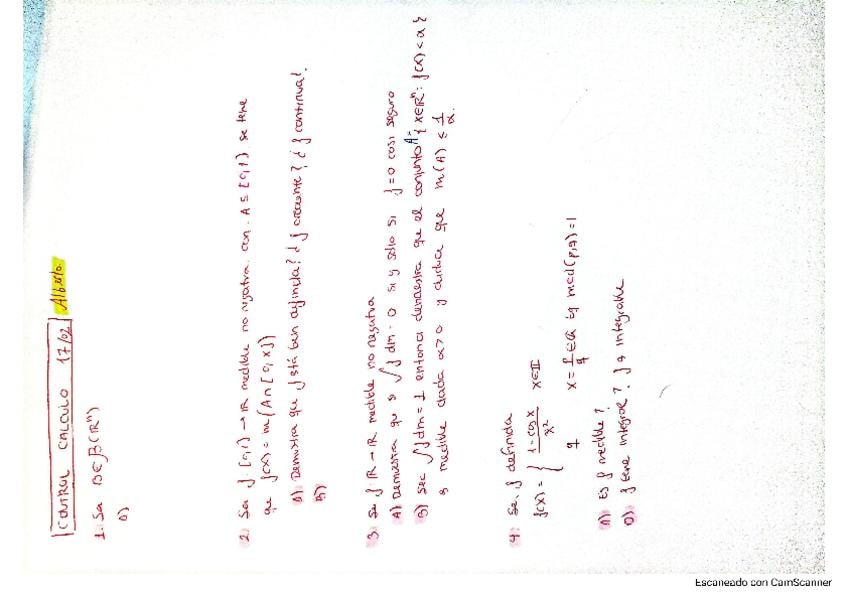 CONTROL CALCULO 17/02 Alberto
1. Sea B∈β(ℝⁿ)
a)
2. Sea f: [0,1) → ℝ medible no negativa. con. A ⊆ [0,1) se tiene
que f(x) = m(A∩[0,x])
A) Demuestra que f está bien definida? ¿f creciente? ¿f continua?.
B)
3. Sea f: ℝ → ℝ medible no negativa
A) Demuestra que si ∫f dm = 0 si y sólo si f=0 casi seguro
B) Sea ∫f dm = 1 entonces demuestra que el conjunto A= {x∈ℝⁿ: f(x) < α}
es medible dada α>0 y deduce que m(A) ≤ 1/α.
4. Sea f definida
f(x) = { 1-cos x / x² x∈𝕀
q x = p/q ∈ℚ tq mcd(p,q)=1
A) Es f medible?
B) f tiene integral? f es integrable
Escaneado con CamScanner